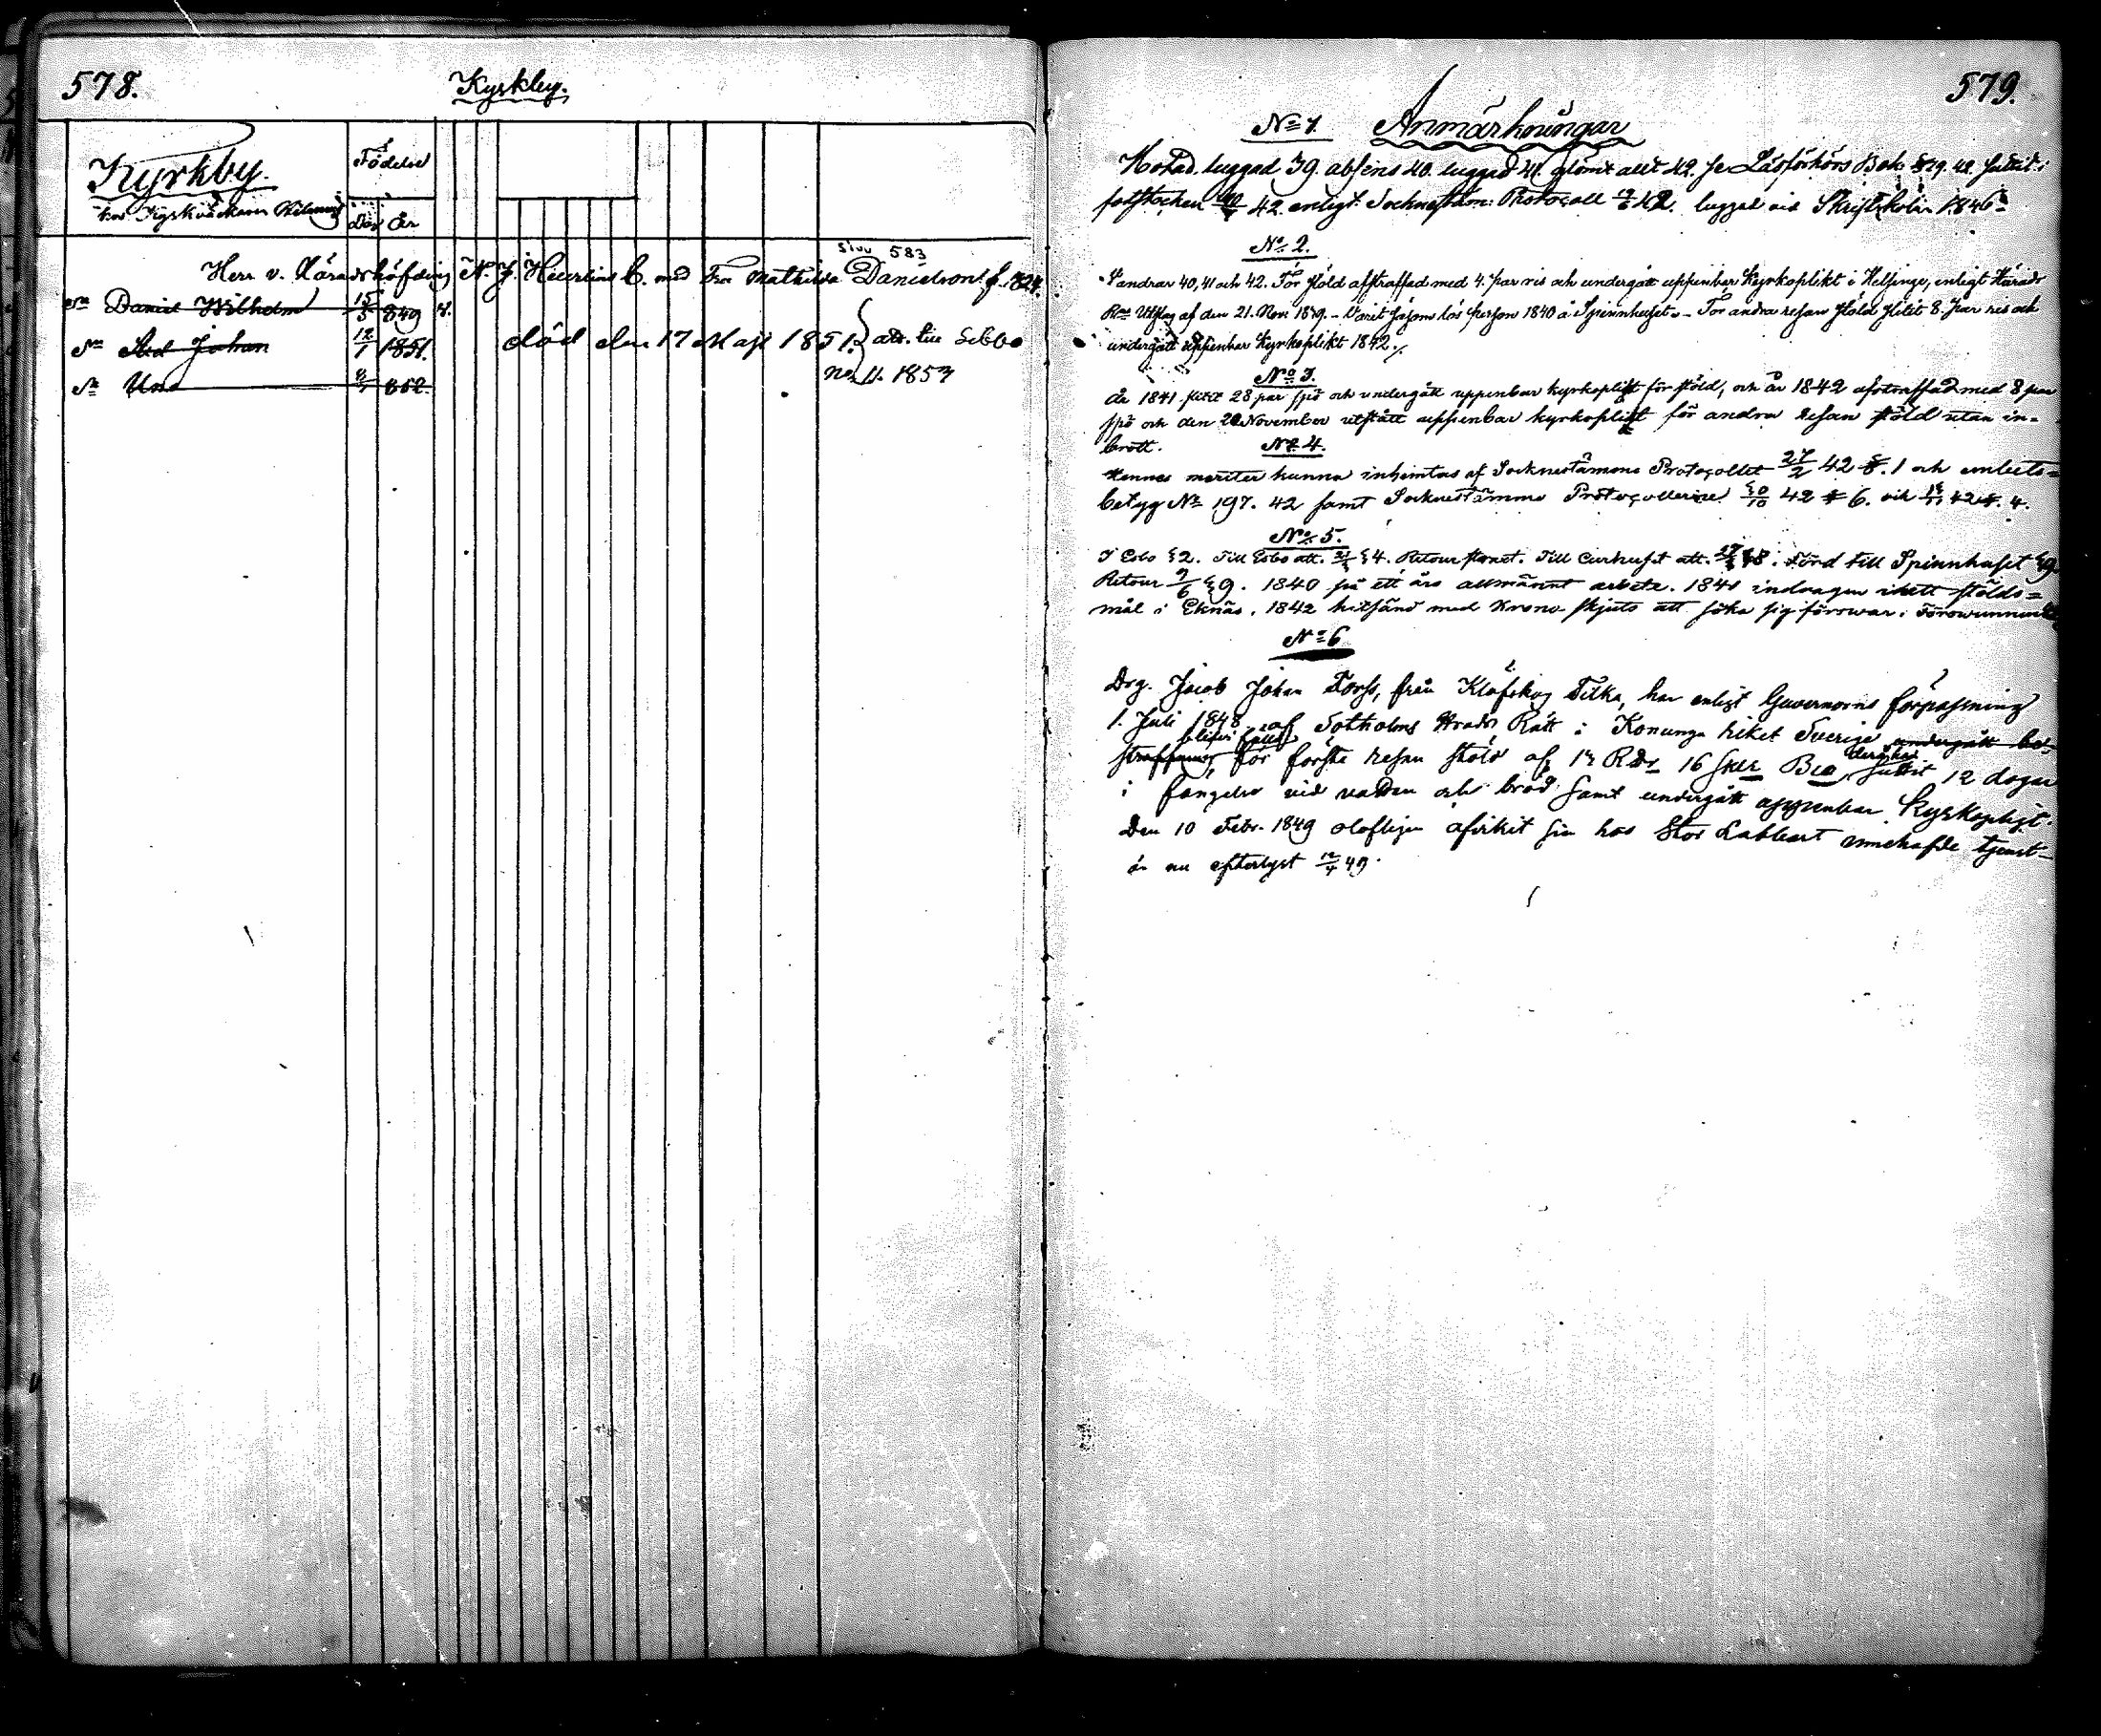 578.
Kyrkby.
Kyrkby.
hos Kyrkväktaren
Födelse
Dag År
sivu 583
Herr v. Häradshöfding N. J. Heerlin C. med Fru Mathilda Danielson f. 1824.
Sn Daniel Wilhelm 15/5 849 v.
Sn Johan 12/1 1851. död den 17 Maji 1851. att. till Sibbo
Sn Uno 8/7 852. No 11. 1853
579.
No 1. Anmärkningar
Hotad. luggad 39. absens 40. luggad 41. glömt allt 42. se Läsförhörs Bok 42. suttit i
fotstocken 42 enligt Sockenstäm: Protocoll 42. luggad vid Skriftskolan 1846.
No 2.
Vandrar 40, 41 och 42. För stöld afstraffad med 4. par ris och undergått uppenbar Kyrkoplikt i Helsinge, enligt Härads
Rtts Utslag af den 21. Nov: 1839. - Varit såsom lös person 1840 å Spinnhuset. - För andra resan stöld slitit 8. par ris och
undergått uppenbar Kyrkoplikt 1842./.
No 3.
år 1841 slitit 28 par spö och undergått uppenbar kyrkoplikt för stöld, och år 1842 afstraffad med 8 par
spö och den 20 November utstått uppenbar kyrkoplikt för andra resan stöld utan in-
brott.
No 4.
Hennes meriter kunna inhemtas af Sockenstämmo Protocollet 27/2 42 §. 1 och
betyg No 197. 42 samt Sockenstämmo Protocollerne 42 § 6. och 42 §. 4.
No 5.
I Esbo 32. Till Esbo att. 34. Retour Till Curhuset att. 38. Förd till Spinnhuset 39
Retour 9/6 39. 1840 på ett års allmännt arbete. 1841 indragen i ett stölds=
mål i Eknäs. 1842 hitsänd med Krono skjuts att söka sig försvar.
No 6
Drg. Jacob Johan Forss, från Klöfskog Tilka, har enligt Guvernorns förpassning
1. Juli 1848 af Sotholms Hrads Rätt i Konunga riket Sverige undergått be-
blifvit fälld
straffning för första resan stöld af 12 Rdr 16 sker Bco, derföre suttit 12 dagar
i fängelse vid vatten och bröd samt undergått uppenbar Kyrkopligt.
Den 10 Febr. 1849 olofligen afvikit sin hos Stor Labbart innehafde tjenst-
är nu efterlyst 12/4 49.